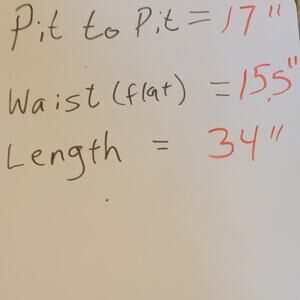 Pit to Pit = 17"
Waist (flat) = 15.5"
Length = 34"